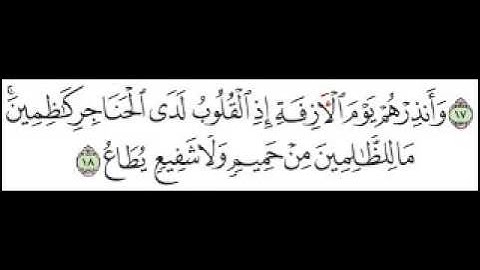 ١٧ وَأَنذِرْهُمْ يَوْمَ الْأَزِفَةِ إِذِ الْقُلُوبُ لَدَى الْحَنَاجِرِ كَٰظِمِينَۚ
مَا لِلظَّٰلِمِينَ مِنْ حَمِيمٍ وَلَا شَفِيعٍ يُطَاعُ ١٨